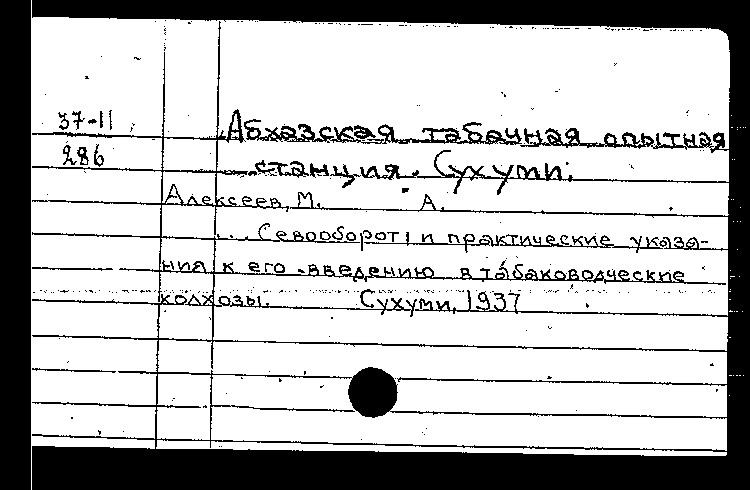 37-11
Абхазская табачная опытная
286
станция. Сухуми.
Алексеев, М. А.
... Севооборот и практические указа-
ния к его введению в табаководческие
колхозы. Сухуми, 1937